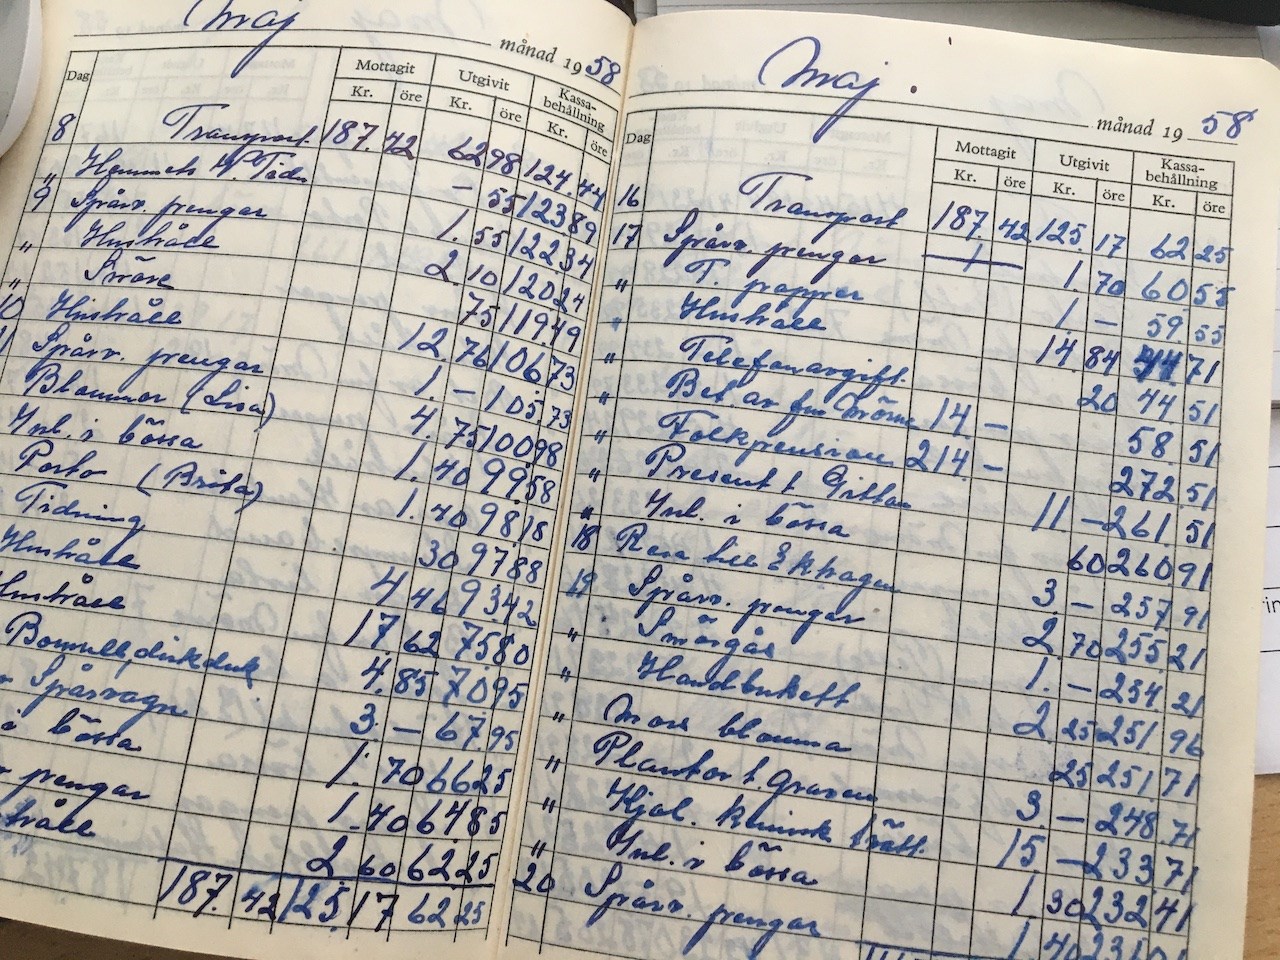 Maj månad 1958
Dag Mottagit Utgivit Kassa-behållning
Kr. öre Kr. öre Kr. öre
8 Transport. 187. 42 62 98 124. 44
" Hemmets V Tidn. – 55 123 89
9 Spårv. pengar 1. 55 122. 34
" Hushåll 2. 10 120 24
" 75 119. 49
10 Hushåll 12. 76 106 73
Spårv. pengar 1. – 105. 73
Blommor (Lisa) 4. 75 100 98
Inl. i bössa 1. 40 99. 58
Porto (Brita) 1. 40 98. 18
Tidning 30 97 88
Hushåll 4 46 93. 42
Hushåll 17. 62 75 80
Bomull, diskduk 4. 85 70 95
Spårvagn 3. – 67. 95
i bössa 1. 70 66 25
pengar 1. 40 64 85
2 60 62 25
187. 42 125. 17 62 25
Maj. månad 1958
Dag Mottagit Utgivit Kassa-behållning
Kr. öre Kr. öre Kr. öre
16 Transport 187. 42 125. 17 62 25
17 Spårv. pengar 1. 70 60 55
" T. papper 1. – 59. 55
" Hushåll 14. 84 44 71
" Telefonavgift. 20 44 51
" Bet av fru 14. – 58. 51
" Folkpension 214. – 272. 51
" Present t. Gittan 11 – 261. 51
" Inl. i bössa 60 260 91
18 Resa 3. – 257. 91
19 Spårv. pengar 2. 70 255. 21
" Smörgås 1. – 254 21
" Handbukett 2. 25 251. 96
" blomma 25 251. 71
" Plantor t. graven 3 – 248. 71
" Kjol. 15 – 233 71
" Inl. i bössa 1 30 232 41
20 Spårv. pengar 1 40 231 01